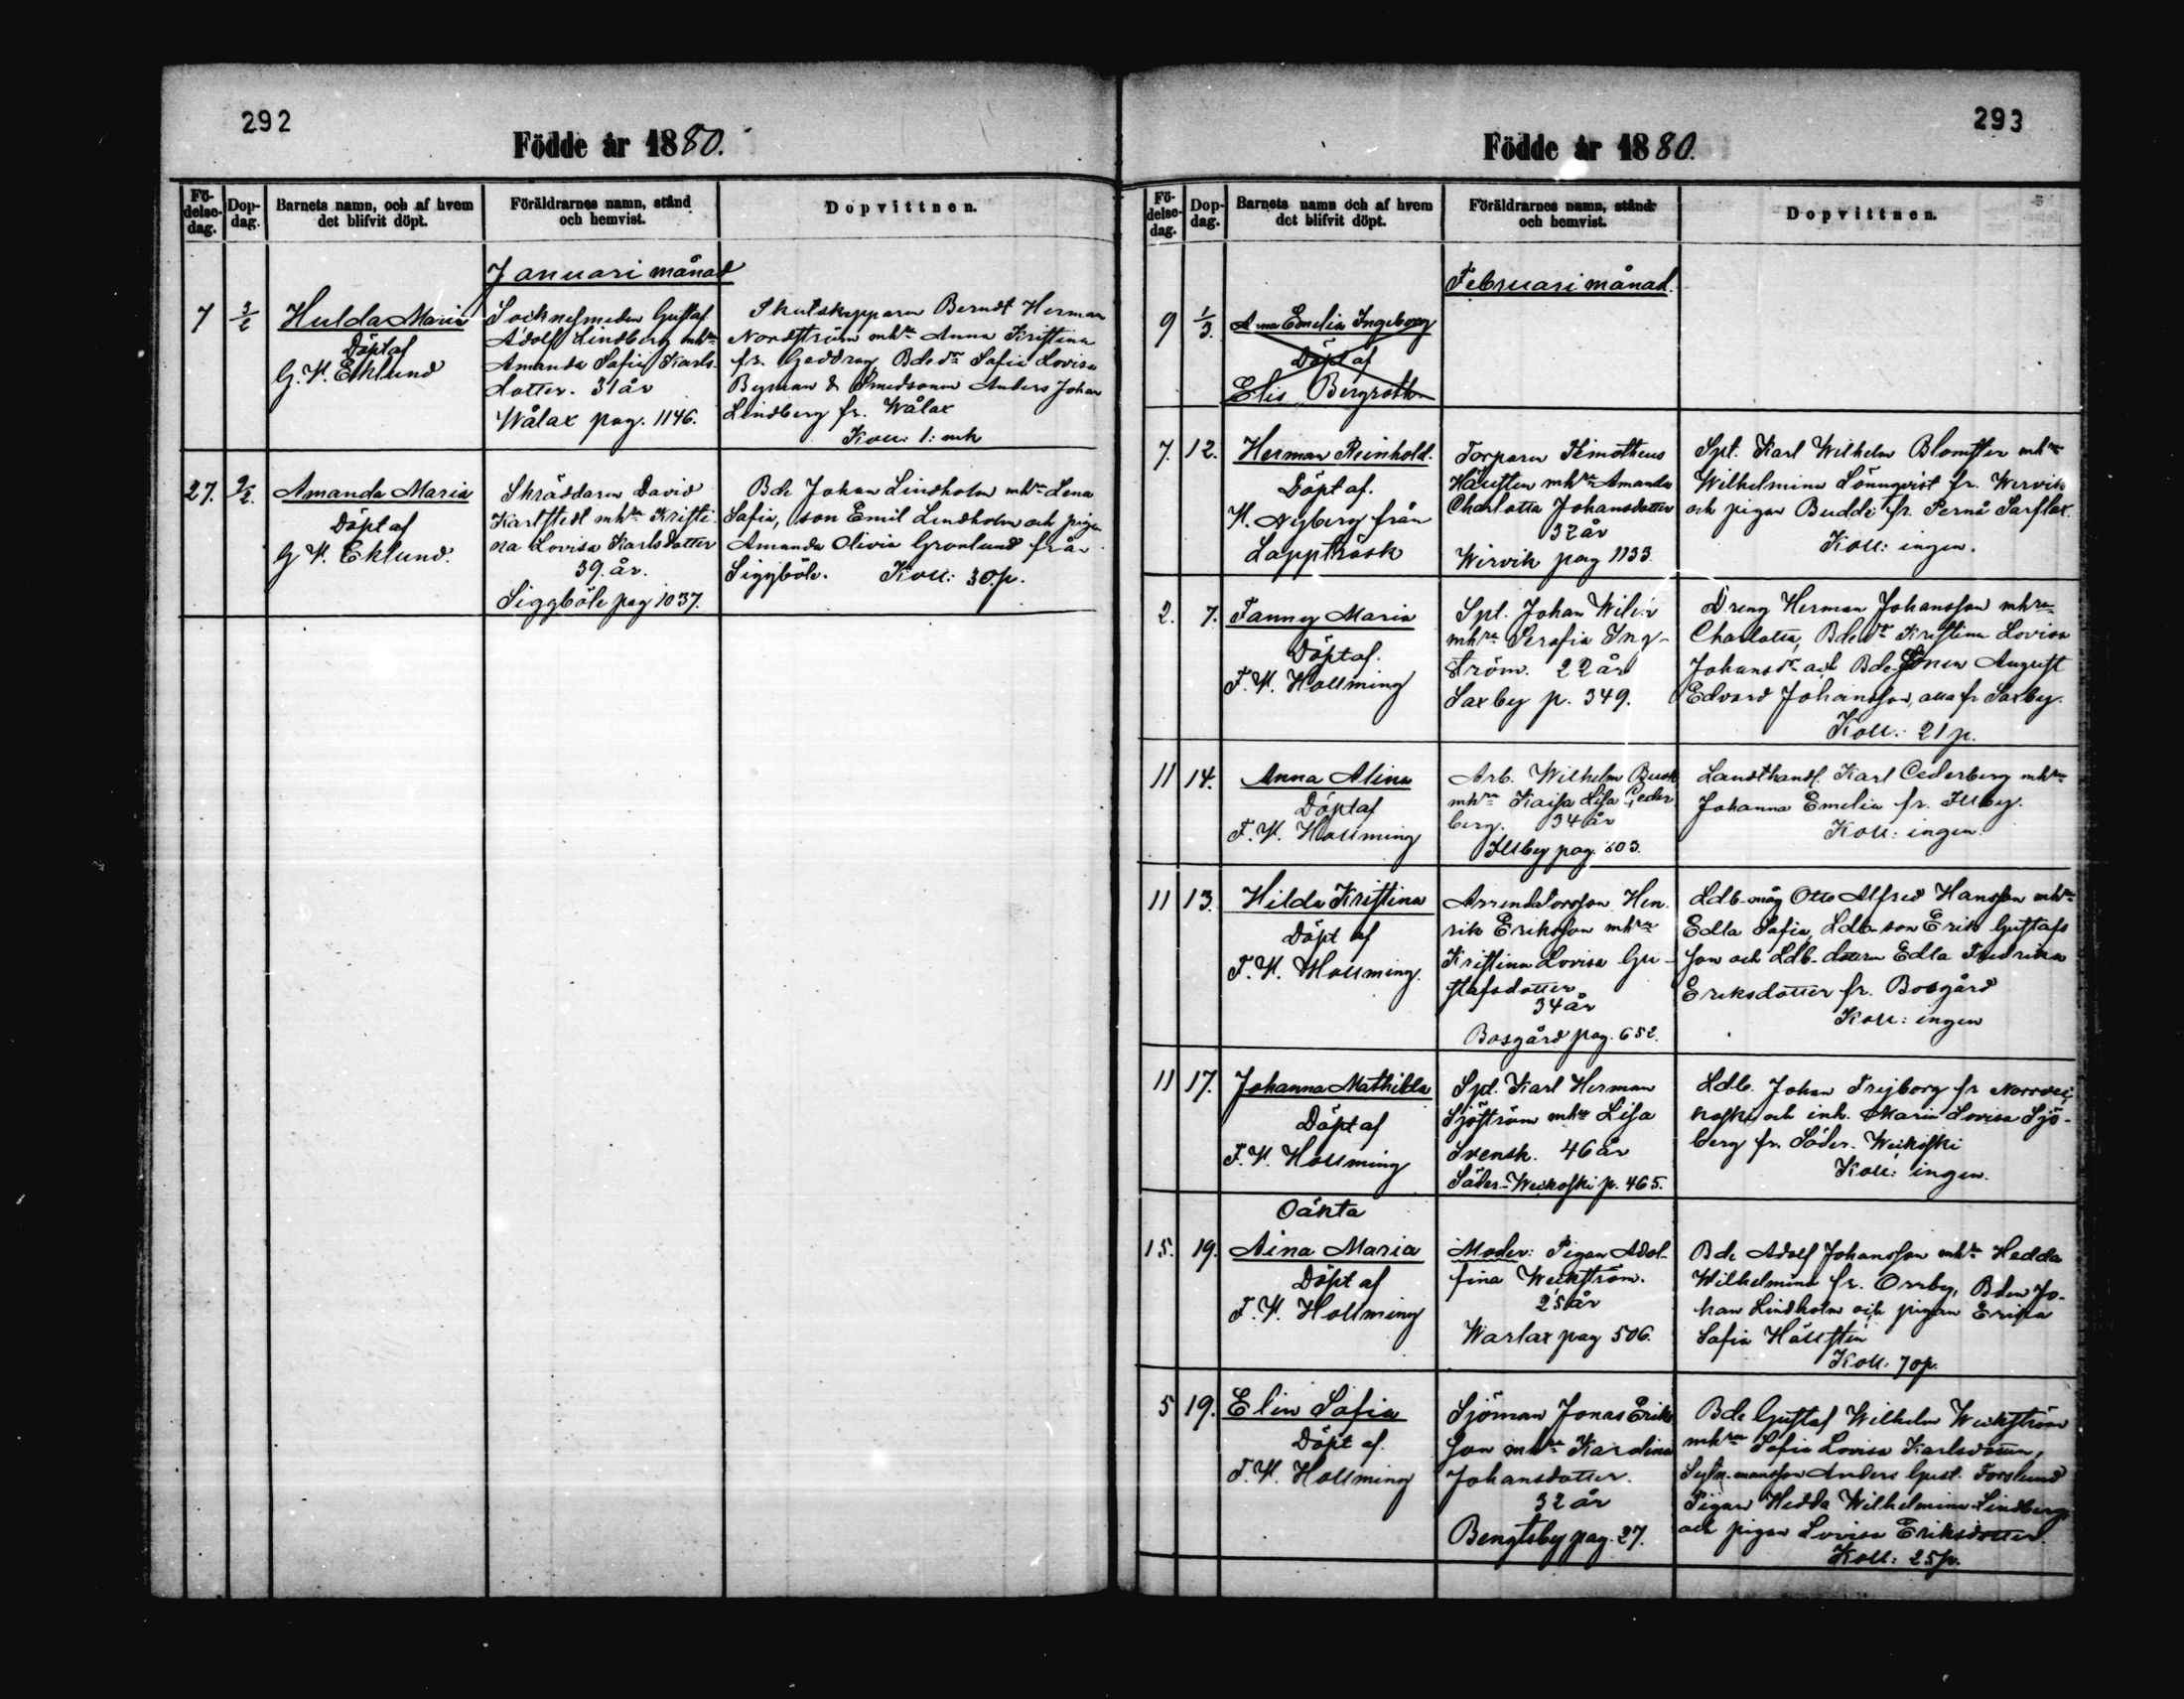 292
Födde år 1880.
Fö-
delse-
dag.
Dop-
dag.
Barnets namn, och af hvem
det blifvit döpt.
Föräldrarnes namn, stånd
och hemvist.
Dopvittnen.
Januari månad
7
3/2
Hulda Maria
Döpt af
G. W. Eklund
Socknesmeden Gustaf
Adolf Lindberg mhra
Amanda Sofia Karls-
dotter. 31 år
Wålax pag. 1146.
Skutskepparen Berndt Herman
Nordström mhra Anna Kristina
fr. Geddrag, Bdedr Sofia Lovisa
Byman & Smedsonen Anders Johan
Lindberg fr. Wålax
Koll: 1: mk
27.
9/2.
Amanda Maria
Döpt af
G. W. Eklund.
Skräddaren David
Karlstedt mhra Kristi-
na Lovisa Karlsdotter
39. år.
Siggböle pag 1037.
Bde Johan Lindholm mhra Lena
Sofia, son Emil Lindholm och pigan
Amanda Olivia Gronlund från
Siggböle. Koll: 30p.
293
Födde år 1880.
Fö-
delse-
dag.
Dop-
dag.
Barnets namn och af hvem
det blifvit döpt.
Föräldrarnes namn, stånd
och hemvist.
Dopvittnen.
Februari månad.
9
1/3.
Anna Emelia Ingeborg
Döpt af
Elis Bergroth
7.
12.
Herman Reinhold.
Döpt af.
W. Nyberg från
Lappträsk
Torparen Timotheus
Hällsten mhra Amanda
Charlotta Johansdotter
32 år
Wirvik pag 1133.
Spt. Karl Wilhelm Blomster mhra
Wilhelmina Lönnqvist fr. Wervik
och pigan Budde fr. Pernå Sarflax.
Koll: ingen.
2.
7.
Fanny Maria
Döpt af.
F. W. Hollming
Spt. Johan Wilén
mhra Serafia Eng-
ström. 22 år
Saxby p. 349.
Dreng Herman Johansson mhra
Charlotta, Bdedr Kristina Lovisa
Johansdr och Bde-sonen August
Edvard Johansson, alla fr Saxby.
Koll: 21p.
11
14.
Anna Alina
Döpt af
F. W. Hollming
Arb. Wilhelm Busk
mhra Kaisa Lisa Ceder-
berg. 34 år
Illby pag. 603.
Landthandl. Karl Cederberg mhra
Johanna Emelia fr. Illby.
Koll: ingen.
11
13.
Hilda Kristina
Döpt af
F. W. Hollming.
Arrendatorsson Hen-
rik Eriksson mhra
Kristina Lovisa Gu-
stafsdotter
34 år
Bosgård pag. 652.
Ldb-måg Otto Alfred Hansson mhra
Edla Sofia, Ldb-son Erik Gustafs
son och Ldb-dottern Edla Fredrika
Eriksdotter fr. Bosgård
Koll: ingen
11
17.
Johanna Mathilda
Döpt af
F. W. Hollming
Spt. Karl Herman
Sjöström mhra Lisa
Svensk. 46 år
Söder-Weckoski p. 465.
Ldb. Johan Frejborg fr Norrvec-
koski och inh. Maria Lovisa Sjö-
berg fr. Söder-Weckoski
Koll: ingen.
Oäkta
15.
19.
Aina Maria
Döpt af
F. W. Hollming
Moder: Pigan Adol-
fina Weckström.
25 år
Warlax pag 506.
Bde Adolf Johansson mhra Hedda
Wilhelmina fr. Orrby, Bden Jo-
han Lindholm och pigan Erika
Sofia Hällsten
Koll: 70p.
5
19.
Elin Sofia
Döpt af.
F. W. Hollming
Sjöman Jonas Eriks
son mhra Karolina
Johansdotter.
32 år
Bengtsby pag. 27.
Bde Gustaf Wilhelm Weckström
mhra Sofia Lovisa Karlsdotter,
Anders Gust. Forslund
Pigan Hedda Wilhelmina Lindberg
och pigan Lovisa Eriksdotter.
Koll: 25p.